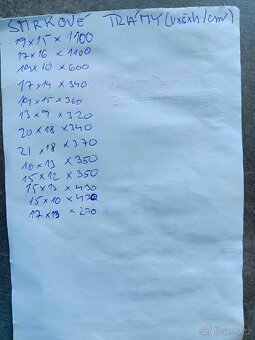 SMRKOVÉ TRÁMY (v×š×h/cm)
19×15×1100
17×16×1100
19×10×600
17×14×340
19×15×360
13×9×320
20×18×340
21×18×370
16×13×350
15×12×350
15×13×430
15×10×430
17×13×270
Bazoš.cz